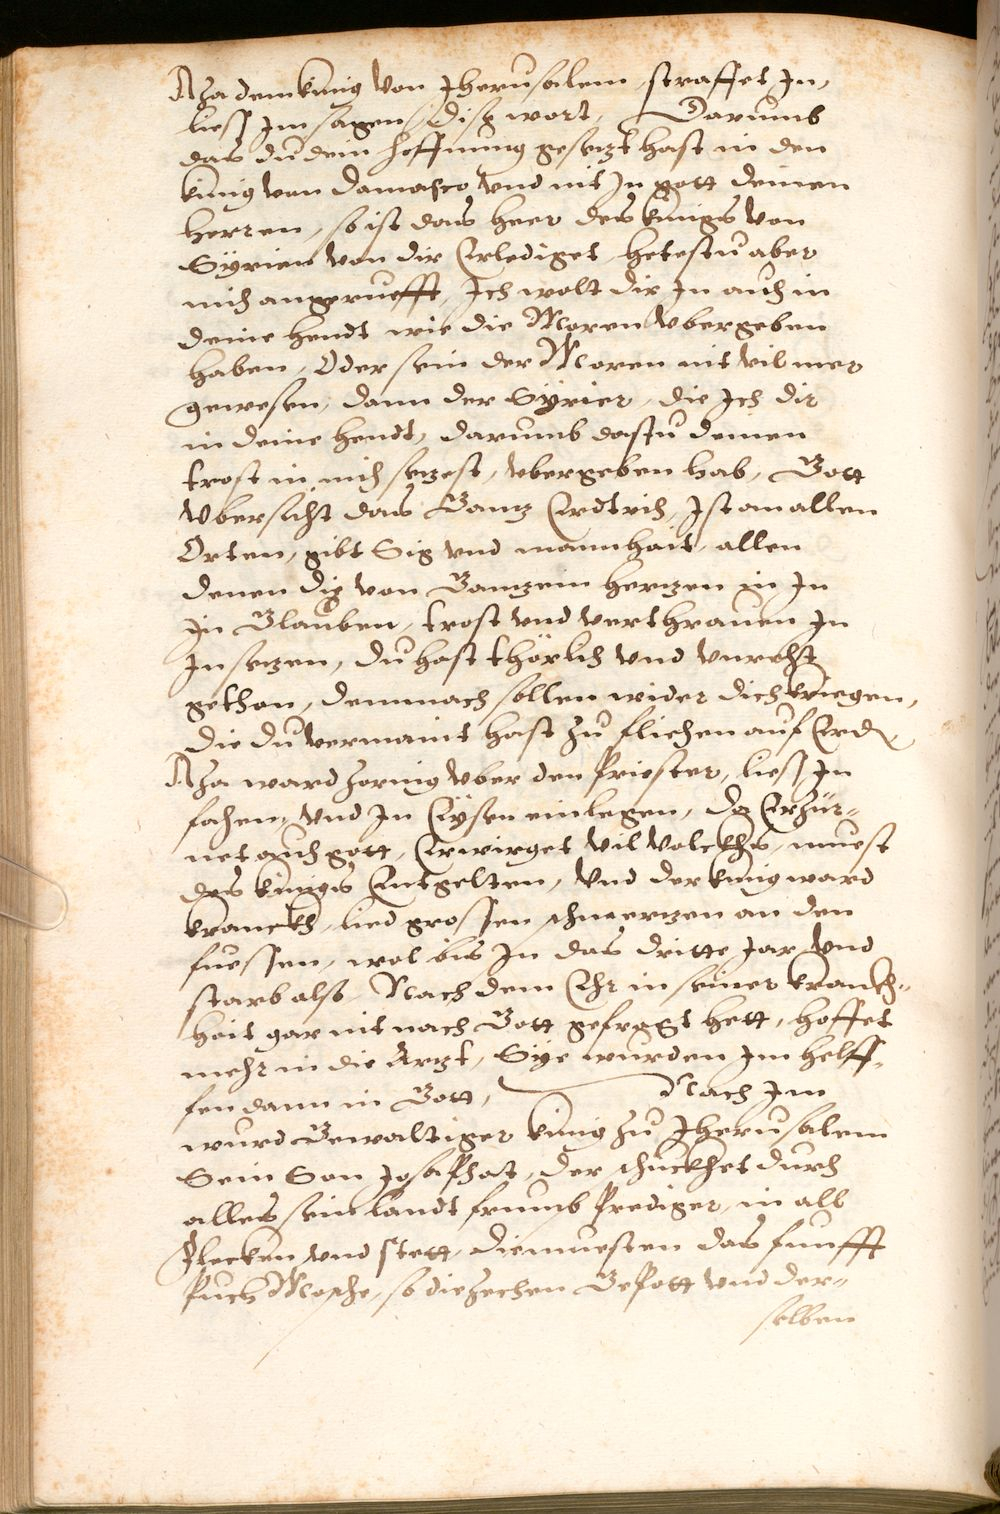 Aza dem kunig von Jherusalem, straffet In,
liess Im sagen dise wort, Darumb
das du dein hoffnung gesetzt hast in den
kunig von Damasco vnd nit In gott deinen
herren, so ist das heer des kunigs von
Syrien von dir Erlediget, hetestu aber
mich angeruefft, Ich wolt dir In auch in
deine hendt wie die Moren vbergeben
haben, Oder sein der Moren nit vil mer
gewesen, dann der Syrier, die Ich dir
in deine hendt, darumb dastu deinen
trost in mich setzest, vbergeben hab, Gott
vbersicht das Gantz Erdtrich, Ist an allen
Orten, gibt Sig vnd mannhait, allen
denen die von Gantzem hertzen in In
In Glauben, trost vnd verthrauen In
In setzen, du hast thörlich vnd vnrecht
gethan, demnach sollen wider dich kriegen,
die du vermaint hast zu fliehen auf Erd,
Aza ward zornig vber den Priester, liess In
fahen, vnd In Eysen einlegen, da Erzür-
net auch gott, Erwirget vil volckhs, muest
des kunigs Entgelten, vnd der kunig ward
kranckh, lied grossen schmertzen an den
fuessen, wol bis In das dritte Jar vnd
starb also, Nach dem Ehr in seiner kranckh-
hait gar nit nach Gott gefragt hett, hoffet
mehr in die Artzt, Sye wurden Im helf-
fen dann in Gott, Nach Im
wurd Gewaltiger kunig zu Jherusalem
Sein Son Josaphat, der schuckhet durch
alles sein landt frumb Prediger, in all
flecken vnd stett, die muesten das funfft
Puch Mosche, so die zechen Gepott vnd der-
selben